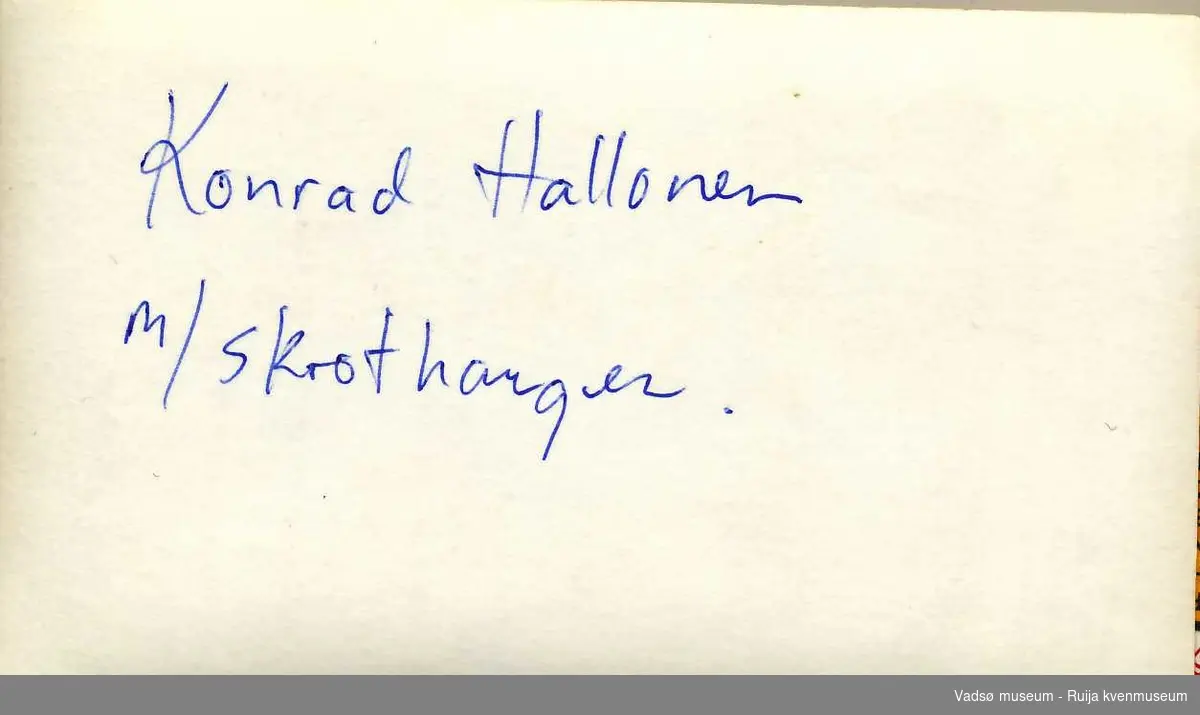 Konrad Hallonen
m/ skrothaugen.
Vadsø museum - Ruija kvenmuseum